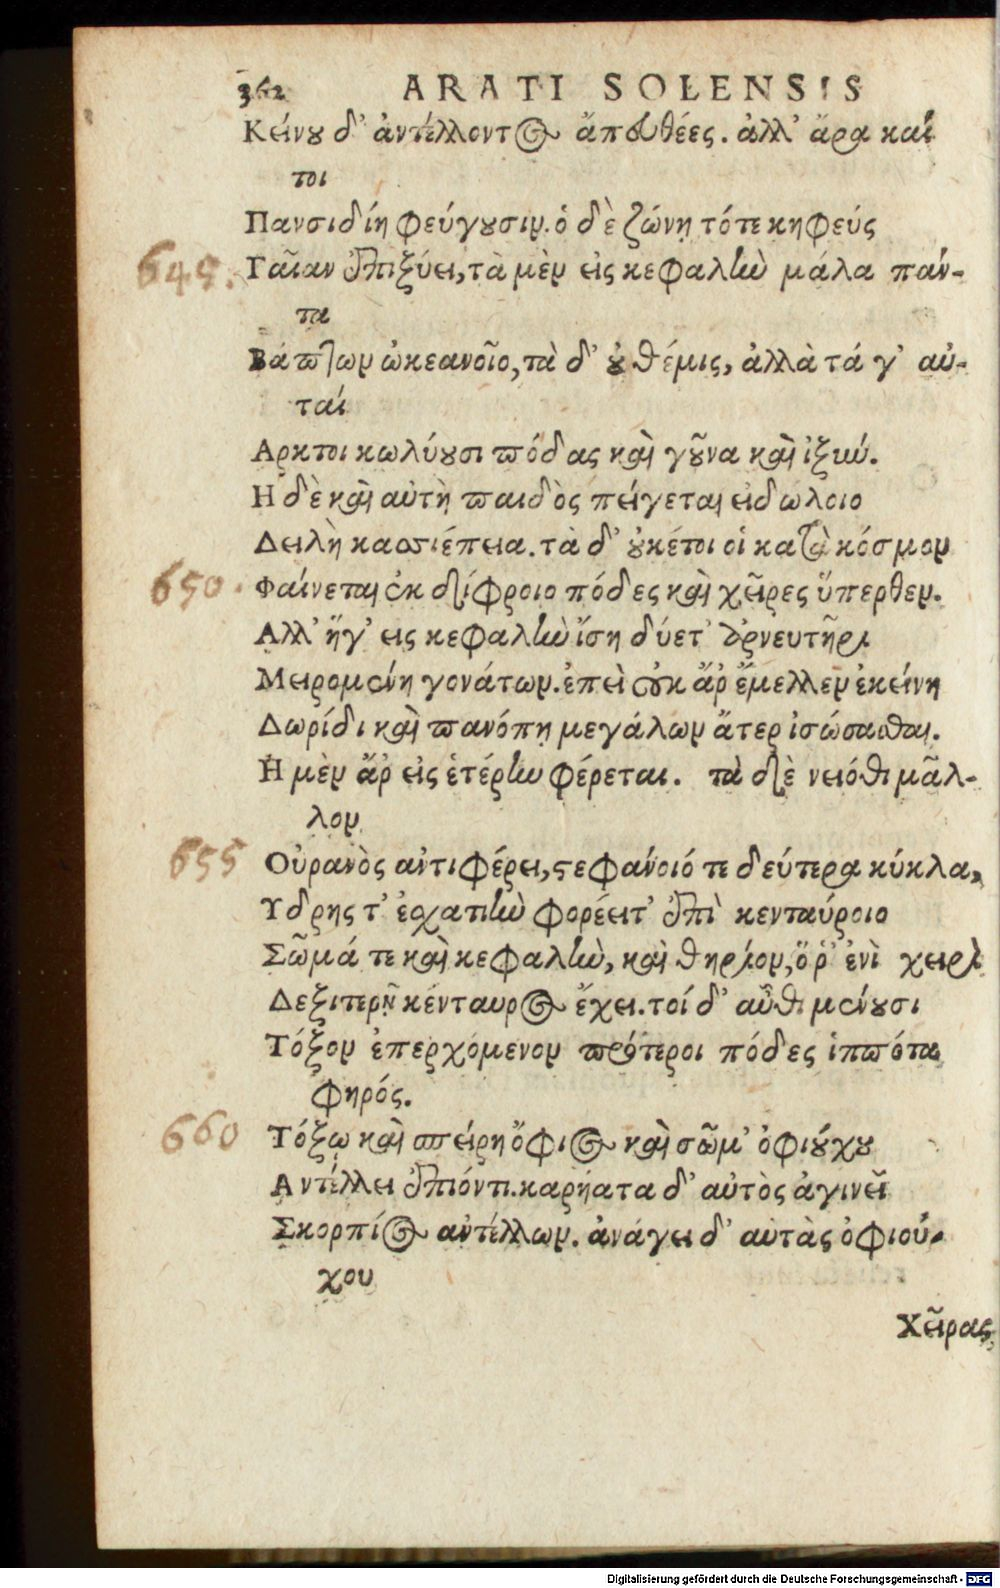 362 ARATI SOLENSIS
Κείνου δ' ἀντέλλοντος ἄπευθέες. ἀλλ' ἄρα καί
τοι
Πανσιδίη φεύγουσιν. ὁ δὲ ζώνῃ τότε κηφεύς
645. Γαῖαν ἐπιξύει, τὰ μὲν εἰς κεφαλὴν μάλα πάν-
τα
Βάπτων ὠκεανοῖο, τὰ δ' οὐ θέμις, ἀλλὰ τά γ' αὐ-
ταί
Αρκτοι κωλύουσι πόδας καὶ γοῦνα καὶ ἰξύν.
Η δὲ καὶ αὐτὴ παιδὸς πείγεται εἰδώλοιο
Δειλὴ κασσιέπεια. τὰ δ' οὐκέτοι οἱ κατὰ κόσμον
650. Φαίνεται ἐκ δίφροιο πόδες καὶ χεῖρες ὕπερθεν.
Αλλ' ἥγ' εἰς κεφαλὴν ἴση δύετ' ἀρνευτῆρι
Μειρομένη γονάτων. ἐπεὶ οὐκ ἄρ' ἔμελλεν ἐκείνη
Δωρίδι καὶ πανόπῃ μεγάλων ἄτερ ἰσώσασθαι.
Η μὲν ἄρ' εἰς ἑτέρην φέρεται. τὰ δὲ νειόθι μᾶλ-
λον
655 Οὐρανὸς ἀντιφέρει, στεφάνοιό τε δεύτερα κύκλα,
Υδρης τ' ἐσχατιὴν φορέειτ' ἐπὶ κενταύροιο
Σῶμά τε καὶ κεφαλὴν, καὶ θηρίον, ὅ ῥ' ἐνὶ χειρὶ
Δεξιτερῇ κένταυρος ἔχει. τοί δ' αὖθι μένουσι
Τόξον ἐπερχόμενον πρότεροι πόδες ἱππότα
φηρός.
660 Τόξῳ καὶ σπείρη ὄφιος καὶ σῶμ' ὀφιούχου
Αντέλλει ἐπιόντι. καρήατα δ' αὐτὸς ἀγινεῖ
Σκορπίος ἀντέλλων. ἀνάγει δ' αὐτὰς ὀφιού-
χου
Χεῖρας,
Digitalisierung gefördert durch die Deutsche Forschungsgemeinschaft - DFG